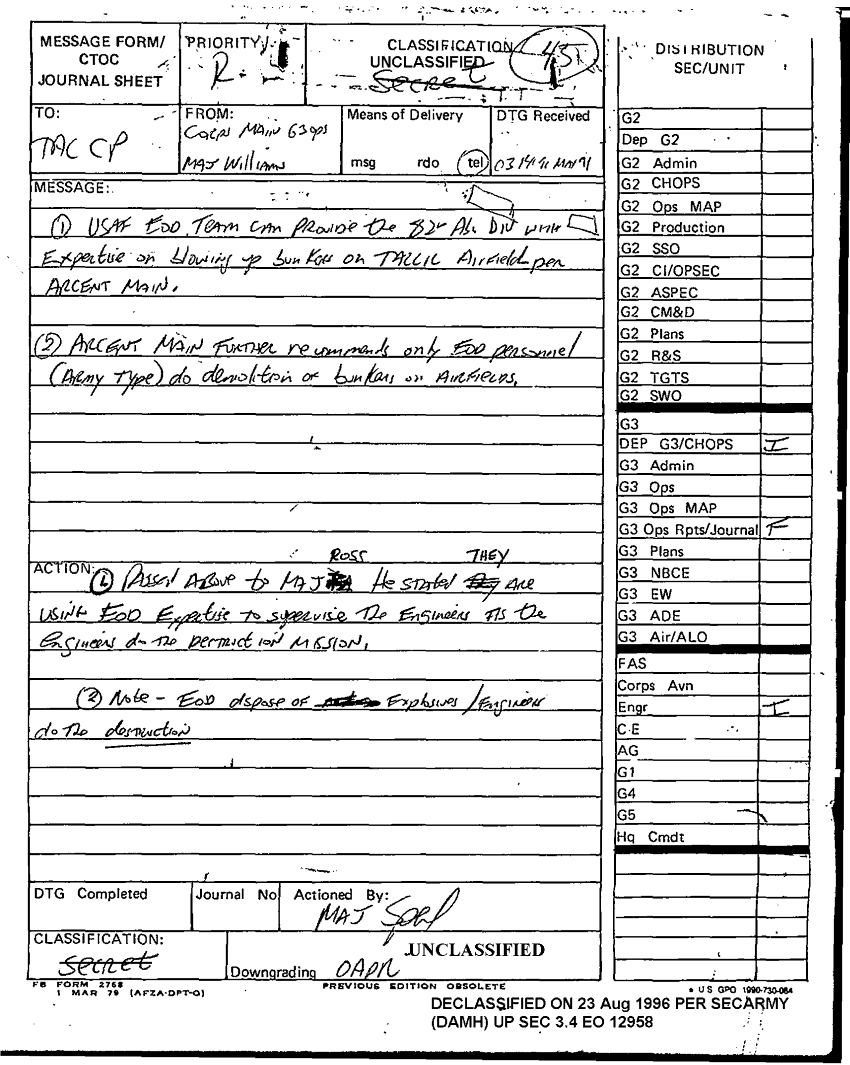 MESSAGE FORM/
CTOC
JOURNAL SHEET
PRIORITY
R
CLASSIFICATION
UNCLASSIFIED
Secret
45
TO:
TAC CP
FROM:
Corps Main G3 Ops
MAJ Williams
Means of Delivery
msg rdo tel
DTG Received
MESSAGE:
(1) USAF EOD TEAM CAN Provide the 82d Abn DIV with
Expertise on blowing up bunkers on TALLIL Airfield per
ARCENT MAIN.
(2) ARCENT MAIN FURTHER recommends only EOD personnel
(Army Type) do demolition of bunkers on AIRFIELDS.
ACTION:
ROSS THEY
(1) Passed Above to MAJ He stated Are
USING EOD Expertise to supervise The Engineers As the
Engineers do the destruction Mission.
(2) Note - EOD dispose of Explosives / Engineers
do the destruction
DTG Completed
Journal No
Actioned By:
MAJ
CLASSIFICATION:
Secret
UNCLASSIFIED
Downgrading OADR
FB FORM 2768
1 MAR 79 (AFZA-DPT-O)
PREVIOUS EDITION OBSOLETE
★ U S GPO 1990-730-084
DECLASSIFIED ON 23 Aug 1996 PER SECARMY
(DAMH) UP SEC 3.4 EO 12958
DISTRIBUTION
SEC/UNIT
G2
Dep G2
G2 Admin
G2 CHOPS
G2 Ops MAP
G2 Production
G2 SSO
G2 CI/OPSEC
G2 ASPEC
G2 CM&D
G2 Plans
G2 R&S
G2 TGTS
G2 SWO
G3
DEP G3/CHOPS I
G3 Admin
G3 Ops
G3 Ops MAP
G3 Ops Rpts/Journal F
G3 Plans
G3 NBCE
G3 EW
G3 ADE
G3 Air/ALO
FAS
Corps Avn
Engr I
C E
AG
G1
G4
G5
Hq Cmdt